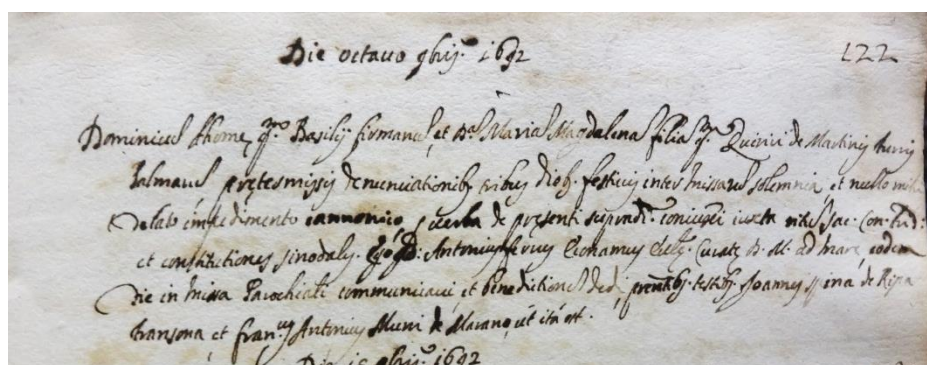 Die octavo 9brij. 1692 122
Dominicus thome q.m Basilij firmanus, et D.a Maria Magdalena filia q.m Quirici de Martinij turris
Palmaus pretesmissis denunciationib, tribus dieb. festivis inter Missarus solemnia, et nullo mihi
delato impedimento cannonico, p verba de presenti supradi. coniunxi iuxta ritus sac. Con. trid:
et constitutiones sinodaly. Ego D. Antonius ferrus Economus Eccl. Curate B. M. ad mare, eodem
die in Missa Parochiali communicavi et benedictiones dedi, prentibj. testibj. Joannes spina de Ripa
transona et fran.cus Antonius Muri de Marano, ut ita est.
Die 15 9brij. 1692